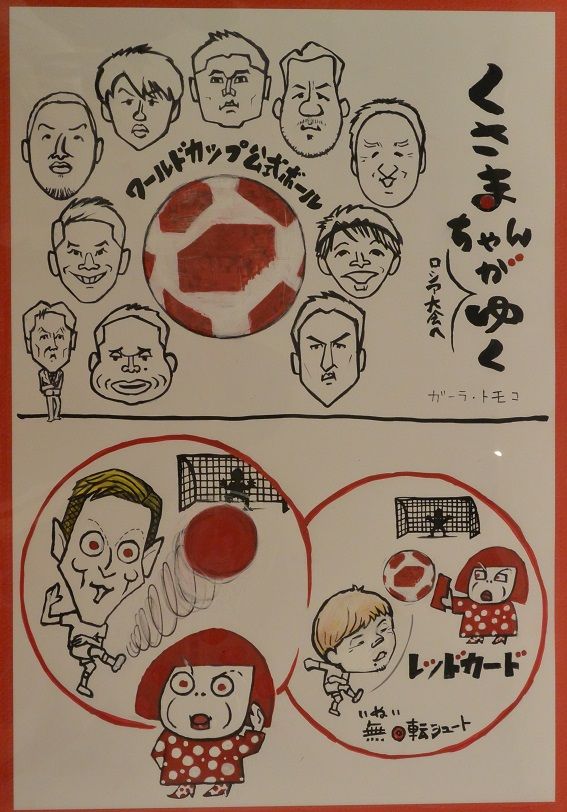 くさま
ちゃん
がゆく
ロシア大会へ
ガーラ・トモコ
ワールドカップ公式ボール
レッドカード
いぬい
無回転シュート